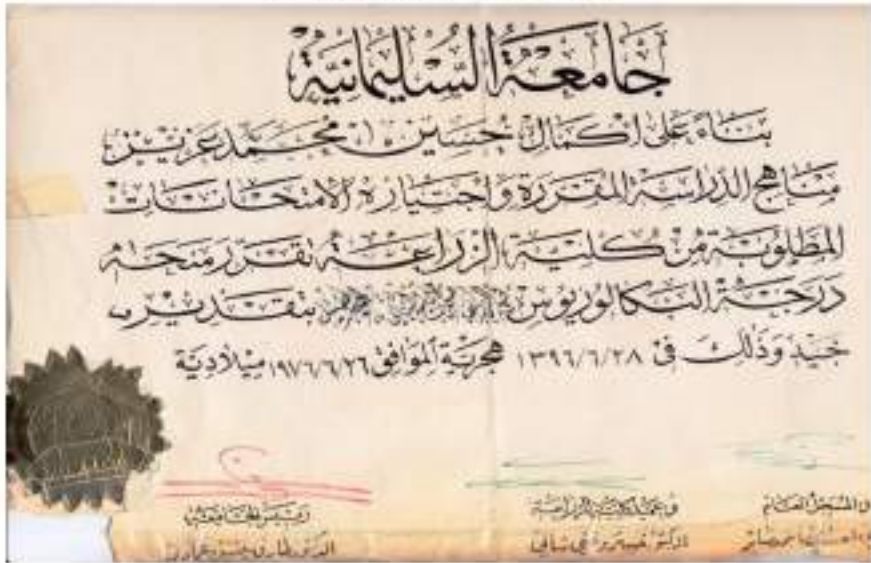 جامعة السليمانية
بناءً على اكمال حسين محمد عزيز
مناهج الدراسة المقررة واجتيازه الامتحانات
المطلوبة من كلية الزراعة نقرر منحه
درجة البكالوريوس بتقدير
جيد وذلك في ١٣٩٦/٦/٢٨ هجرية الموافق ١٩٧٦/٦/٢٦ ميلادية
المسجل العام وعميد كلية الزراعة رئيس الجامعة
الدكتور الدكتور